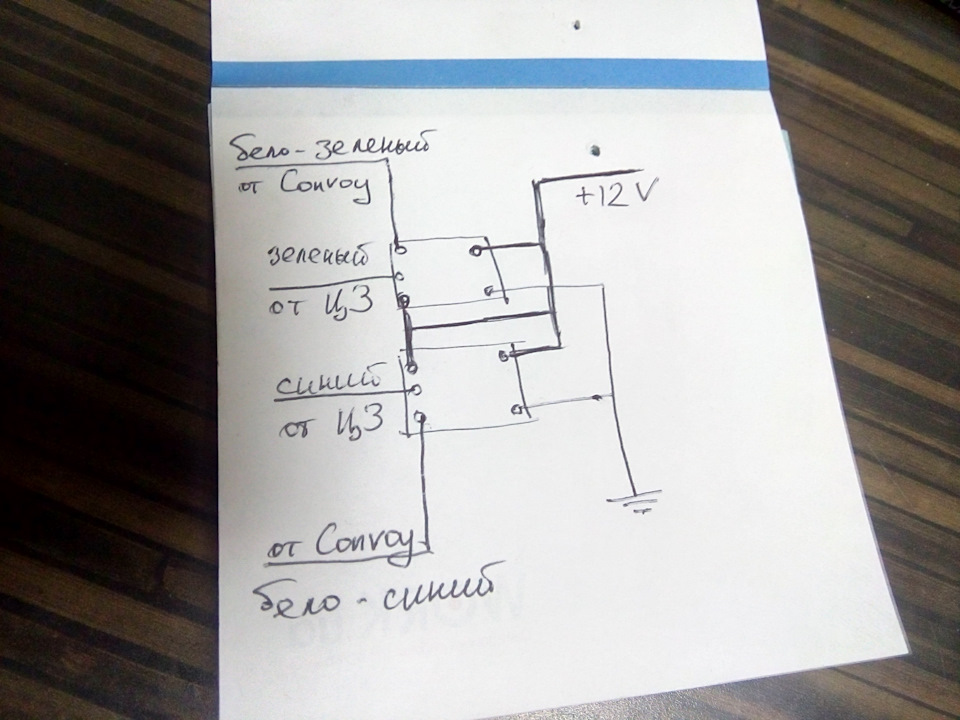 бело-зеленый
от Convoy
+12V
зеленый
от ЦЗ
синий
от ЦЗ
от Convoy
бело-синий